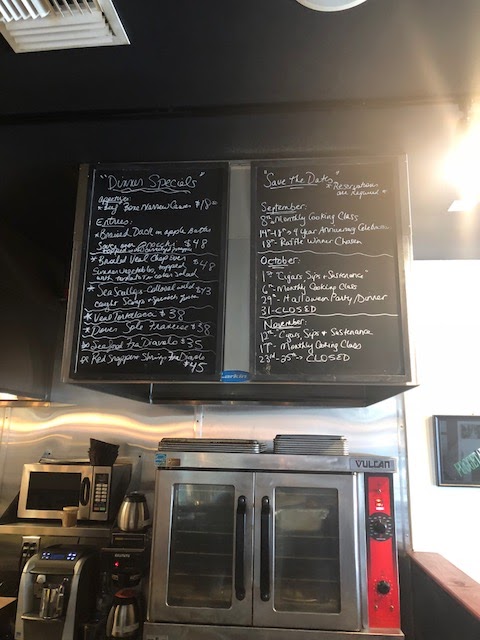 "Dinner Specials"
appetizer:
*Beef Bone Marrow $18
Entrees:
*Braised Duck in apple Butter
Sauce over Gnocchi $48
*Broiled Veal Chop over
Summer vegetables, topped $48
with tomato
*Sea Scallops $43
*Veal $38
*Dover Sole Francese $38
*Seafood Fra Diavolo $35
*Red Snapper Shrimp Fra Diavolo
$45
"Save the Dates"
*Reservations
are Required*
September:
8th - Monthly Cooking Class
Year Anniversary Celebration
18 - Raffle Winner Chosen
October:
1st "Cigars, Sips & Sustenance"
6th Monthly Cooking Class
29th - Halloween Party/Dinner
31 - CLOSED
November:
12th - Cigars, Sips & Sustenance
17 - Monthly Cooking Class
23rd - 25th -> CLOSED
VULCAN